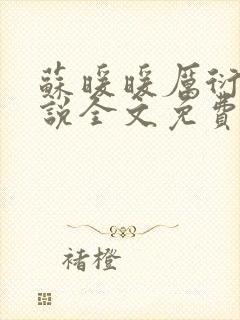 蘇暖暖厲衍
說全文免費
褚橙